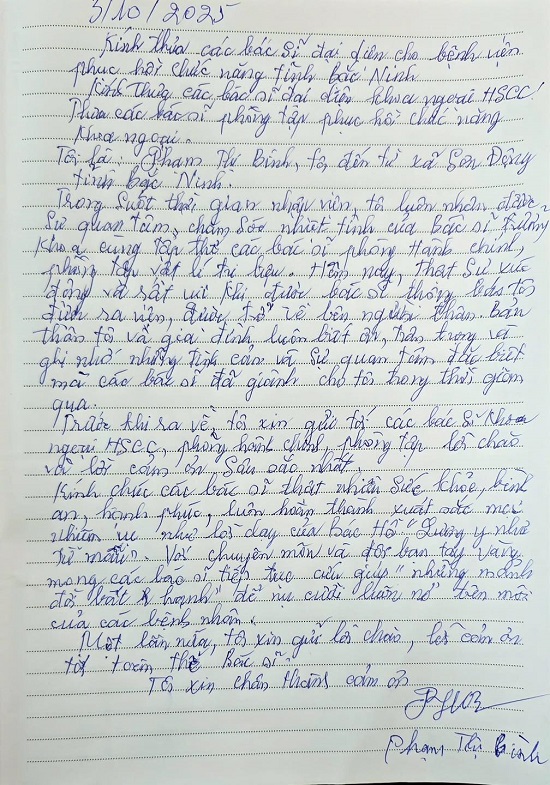 3/10/2025
Kính thưa các bác sĩ đại diện cho bệnh viện
phục hồi chức năng tỉnh Bắc Ninh
Kính thưa các bác sĩ đại diện khoa ngoại HSCC!
Thưa các bác sĩ phòng tập phục hồi chức năng
khoa ngoại.
Tôi là: Phạm Thị Bính, tôi đến từ xã Sơn Động
tỉnh Bắc Ninh.
Trong suốt thời gian nhập viện, tôi luôn nhận được
sự quan tâm, chăm sóc nhiệt tình của bác sĩ trưởng
khoa cùng tập thể các bác sĩ phòng hành chính,
phòng tập vật lí trị liệu. Hôm nay, thật sự xúc
động và rất vui khi được bác sĩ thông báo tôi
được ra viện, được trở về bên người thân. Bản
thân tôi và gia đình luôn biết ơn, trân trọng và
ghi nhớ những tình cảm và sự quan tâm đặc biệt
mà các bác sĩ đã giành cho tôi trong thời gian
qua.
Trước khi ra về, tôi xin gửi tới các bác sĩ khoa
ngoại HSCC, phòng hành chính, phòng tập lời chào
và lời cảm ơn sâu sắc nhất.
Kính chúc các bác sĩ thật nhiều sức khỏe, bình
an, hạnh phúc, luôn hoàn thành xuất sắc mọi
nhiệm vụ như lời dạy của Bác Hồ "Lương y như
từ mẫu". Với chuyên môn và đôi bàn tay vàng
mong các bác sĩ tiếp tục cứu giúp "những mảnh
đời bất hạnh" để nụ cười luôn nở trên môi
của các bệnh nhân.
Một lần nữa, tôi xin gửi lời chào, lời cảm ơn
tới toàn thể bác sĩ!
Tôi xin chân thành cảm ơn
Phạm Thị Bính